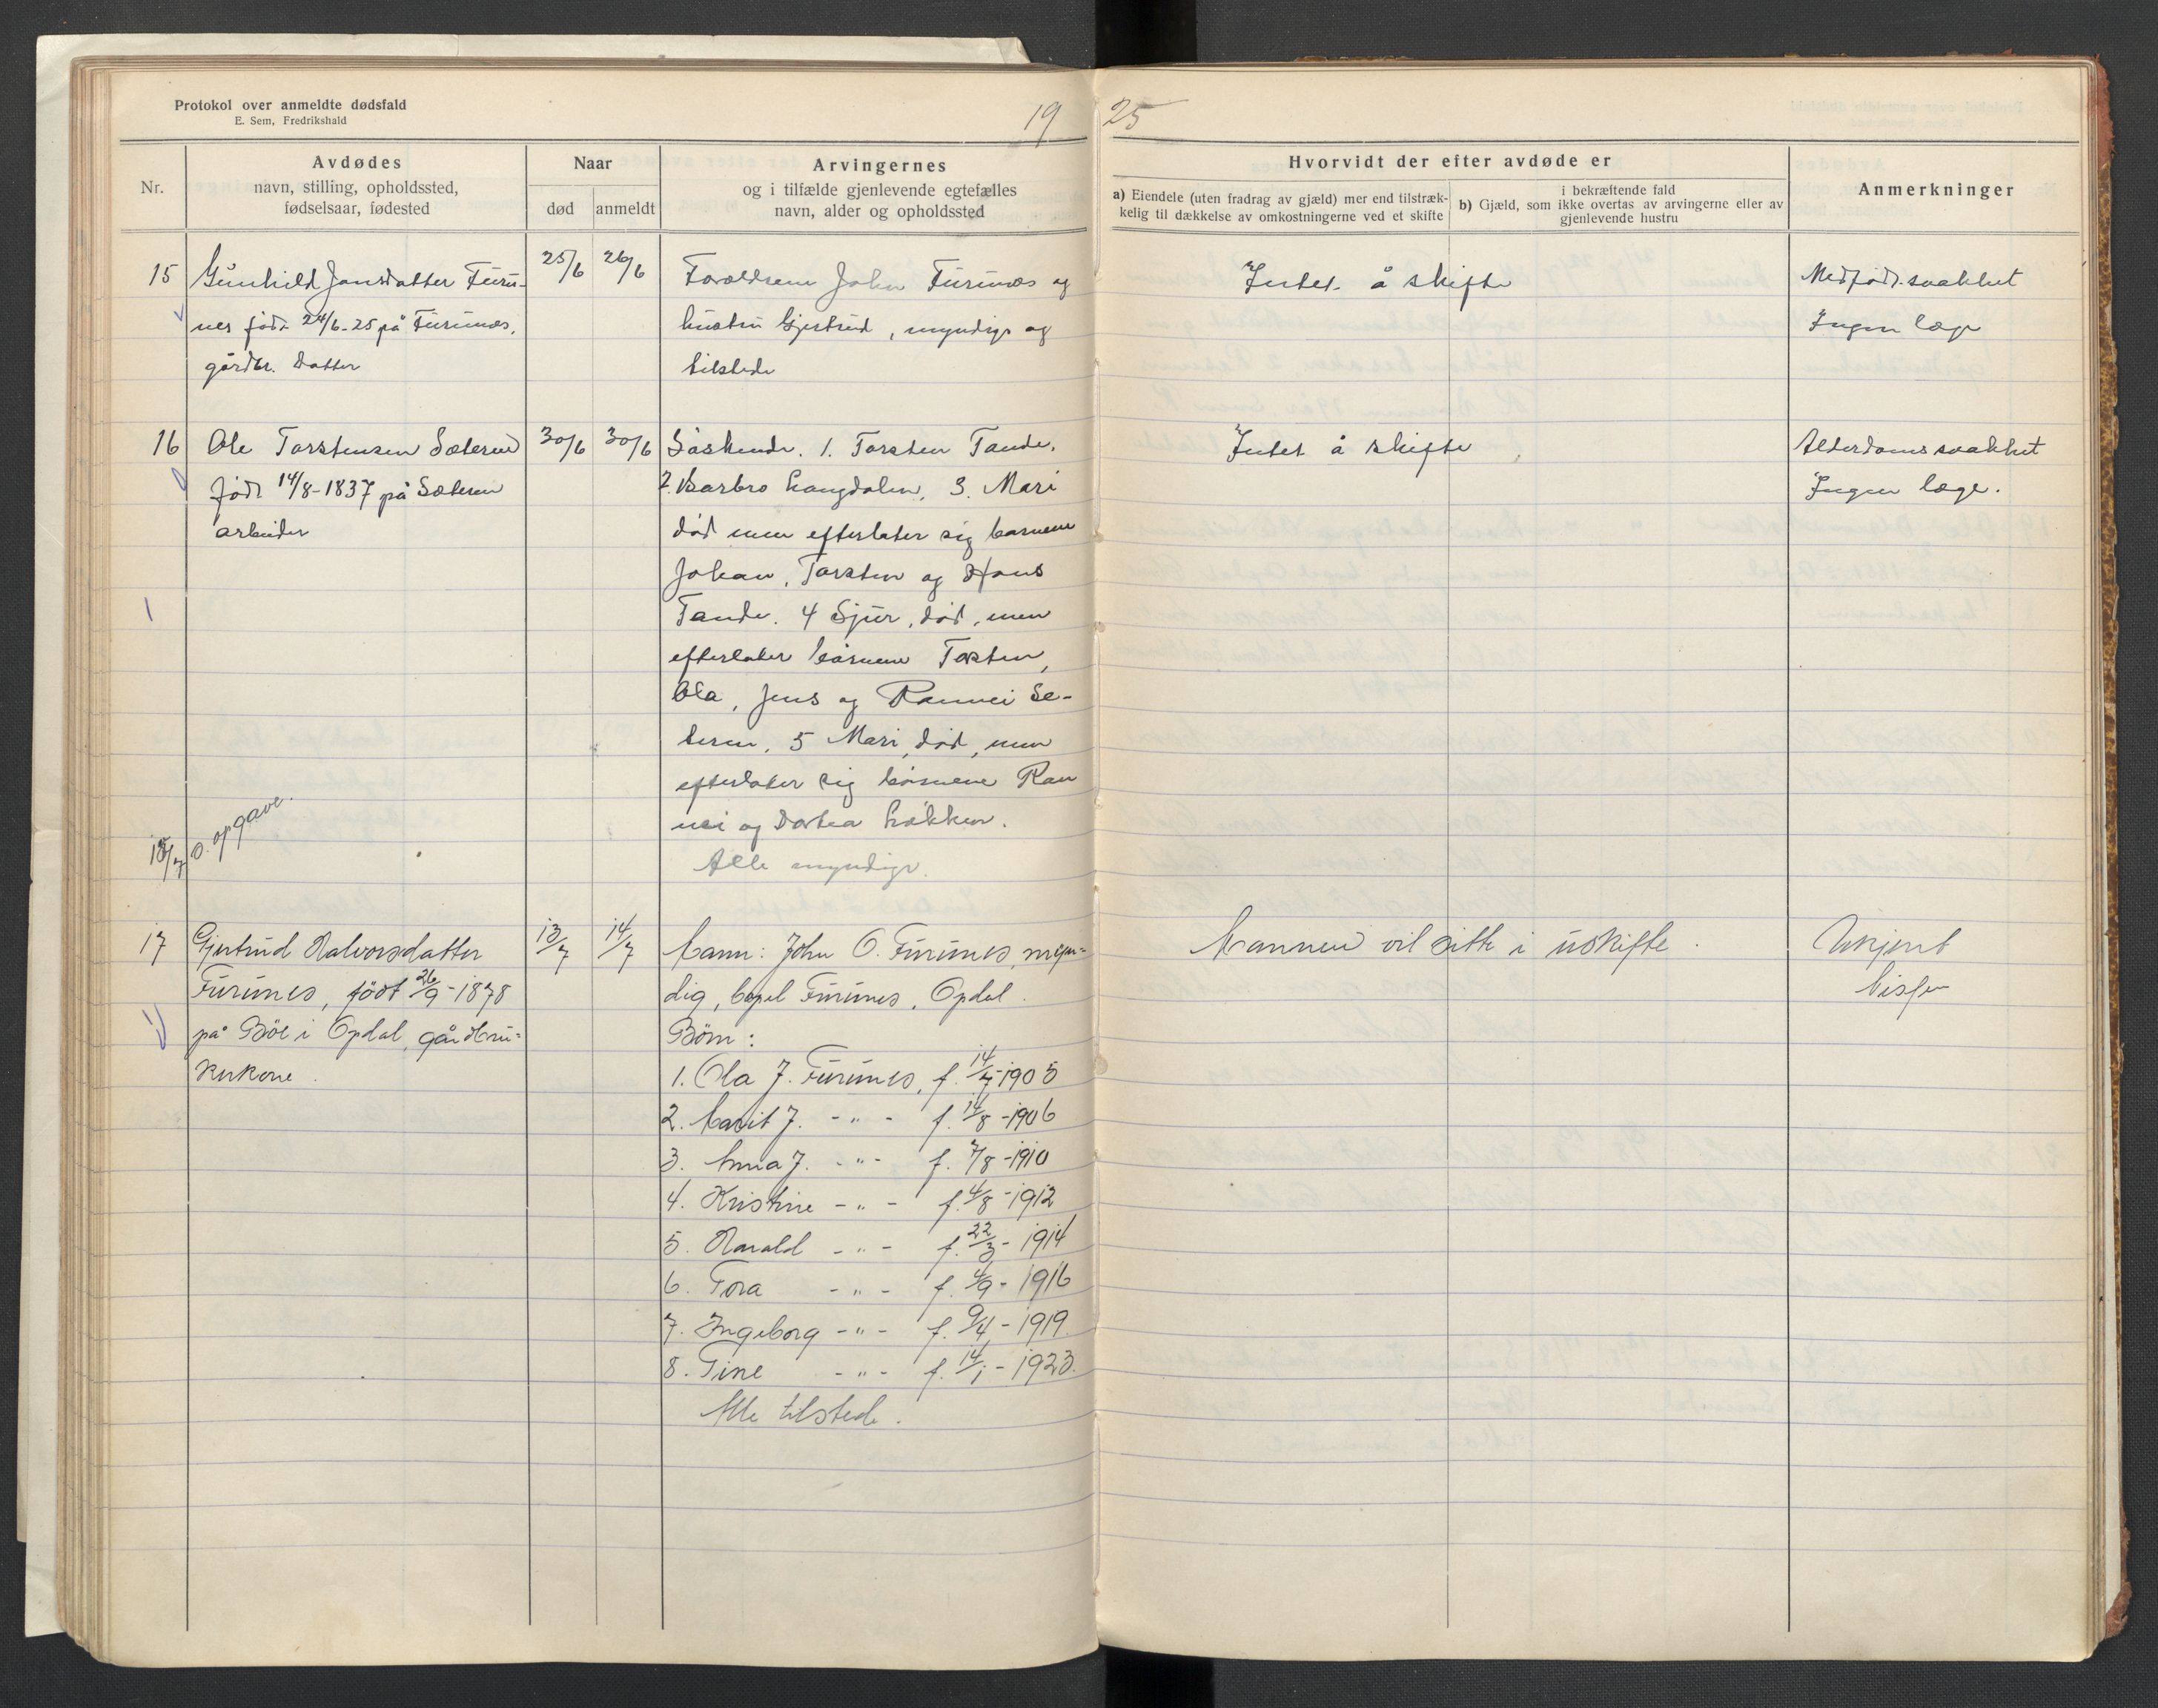 Protokol over anmeldte dødsfald
E. Sem, Fredrikshald
19 25
Nr.
Avdødes
navn, stilling, opholdssted,
fødselsaar, fødested
Naar
død
anmeldt
Arvingernes
og i tilfælde gjenlevende egtefælles
navn, alder og opholdssted
Hvorvidt der efter avdøde er
a) Eiendele (uten fradrag av gjæld) mer end tilstræk-
kelig til dækkelse av omkostningerne ved et skifte
i bekræftende fald
b) Gjæld, som ikke overtas av arvingerne eller av
gjenlevende hustru
Anmerkninger
15
Gunhild Jonsdatter Furu-
nes født 24/6-25 på Furunes,
gårdbr. datter
25/6
26/6
Forældrene John Furunes og
hustru Gjertrud, myndige og
tilstede
Intet å skifte
Medfødt svakhet
Ingen læge
16
Ole Torstensen Sæteren
født 14/8-1837 på Sæteren
arbeider
30/6
30/6
Søskende. 1. Torsten Tande.
2. Barbro Langdalen, 3. Mari
død men efterlater sig barnene
Johan, Torsten og Hans
Tande. 4 Sjur, død, men
efterlater børnene Torsten,
Ola, Jens og Rannei Se-
teren, 5 Mari, død, men
efterlater sig børnene Ran
nei og Dortea Løkken.
Alle myndige.
Intet å skifte
Alderdomssvakhet
Ingen læge.
D. opgave.
17
Gjertrud Halvorsdatter
Furunes, født 26/9-1878
på Böe i Opdal, gårdbru-
kerkone.
13/7
14/7
Mann: John O. Furunes, myn-
dig, bopel Furunes, Opdal.
Börn:
1. Ola J. Furunes, f. 14/7-1905
2. Marit J. - " - f. 14/8-1906
3. Anna J. - " - f. 7/8-1910
4. Kristine - " - f. 4/8-1912
5. Harald - " - f. 22/3-1914
6. Tora - " - f. 4/9-1916
7. Ingeborg - " - f. 9/4-1919.
8. Tine - " - f. 14/1-1923.
Alle tilstede.
Mannen vil sitte i uskifte.
Ukjent